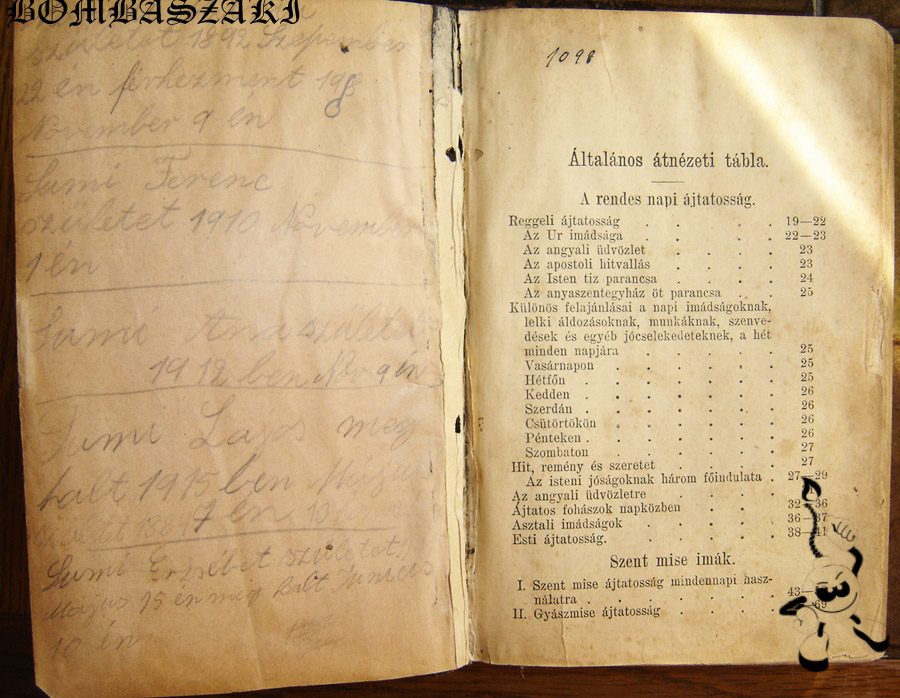 BOMBASZAKI
születet 1892 Szeptember
22 én férhezment 19
November 9 én
Sumi Ferenc
születet 1910 November
1 én
Sumi
1912 ben Nov 9 én
Sumi Lajos meg
halt 1915 ben
7 én 10
Sumi Erzsébet születet
Május 15 én meg halt Junius
10 én
1098
Általános átnézeti tábla.
A rendes napi ájtatosság.
Reggeli ájtatosság . . . . 19—22
Az Ur imádsága . . . . 22—23
Az angyali üdvözlet . . . . 23
Az apostoli hitvallás . . . . 23
Az Isten tiz parancsa . . . . 24
Az anyaszentegyház öt parancsa . . 25
Különös felajánlásai a napi imádságoknak,
lelki áldozásoknak, munkáknak, szenve-
dések és egyéb jócselekedeteknek, a hét
minden napjára . . . . 25
Vasárnapon . . . . . 25
Hétfőn . . . . . . 25
Kedden . . . . . . 26
Szerdán . . . . . . 26
Csütörtökön . . . . . 26
Pénteken . . . . . . 26
Szombaton . . . . . 27
Hit, remény és szeretet . . . 27
Az isteni jóságoknak három főindulata . 27—29
Az angyali üdvözletre . . . .
Ájtatos fohászok napközben . . . 32—36
Asztali imádságok . . . . 36—37
Esti ájtatosság. . . . . . 38—41
Szent mise imák.
I. Szent mise ájtatosság mindennapi hasz-
nálatra . . . . . . 43—
II. Gyászmise ájtatosság . . . . 69